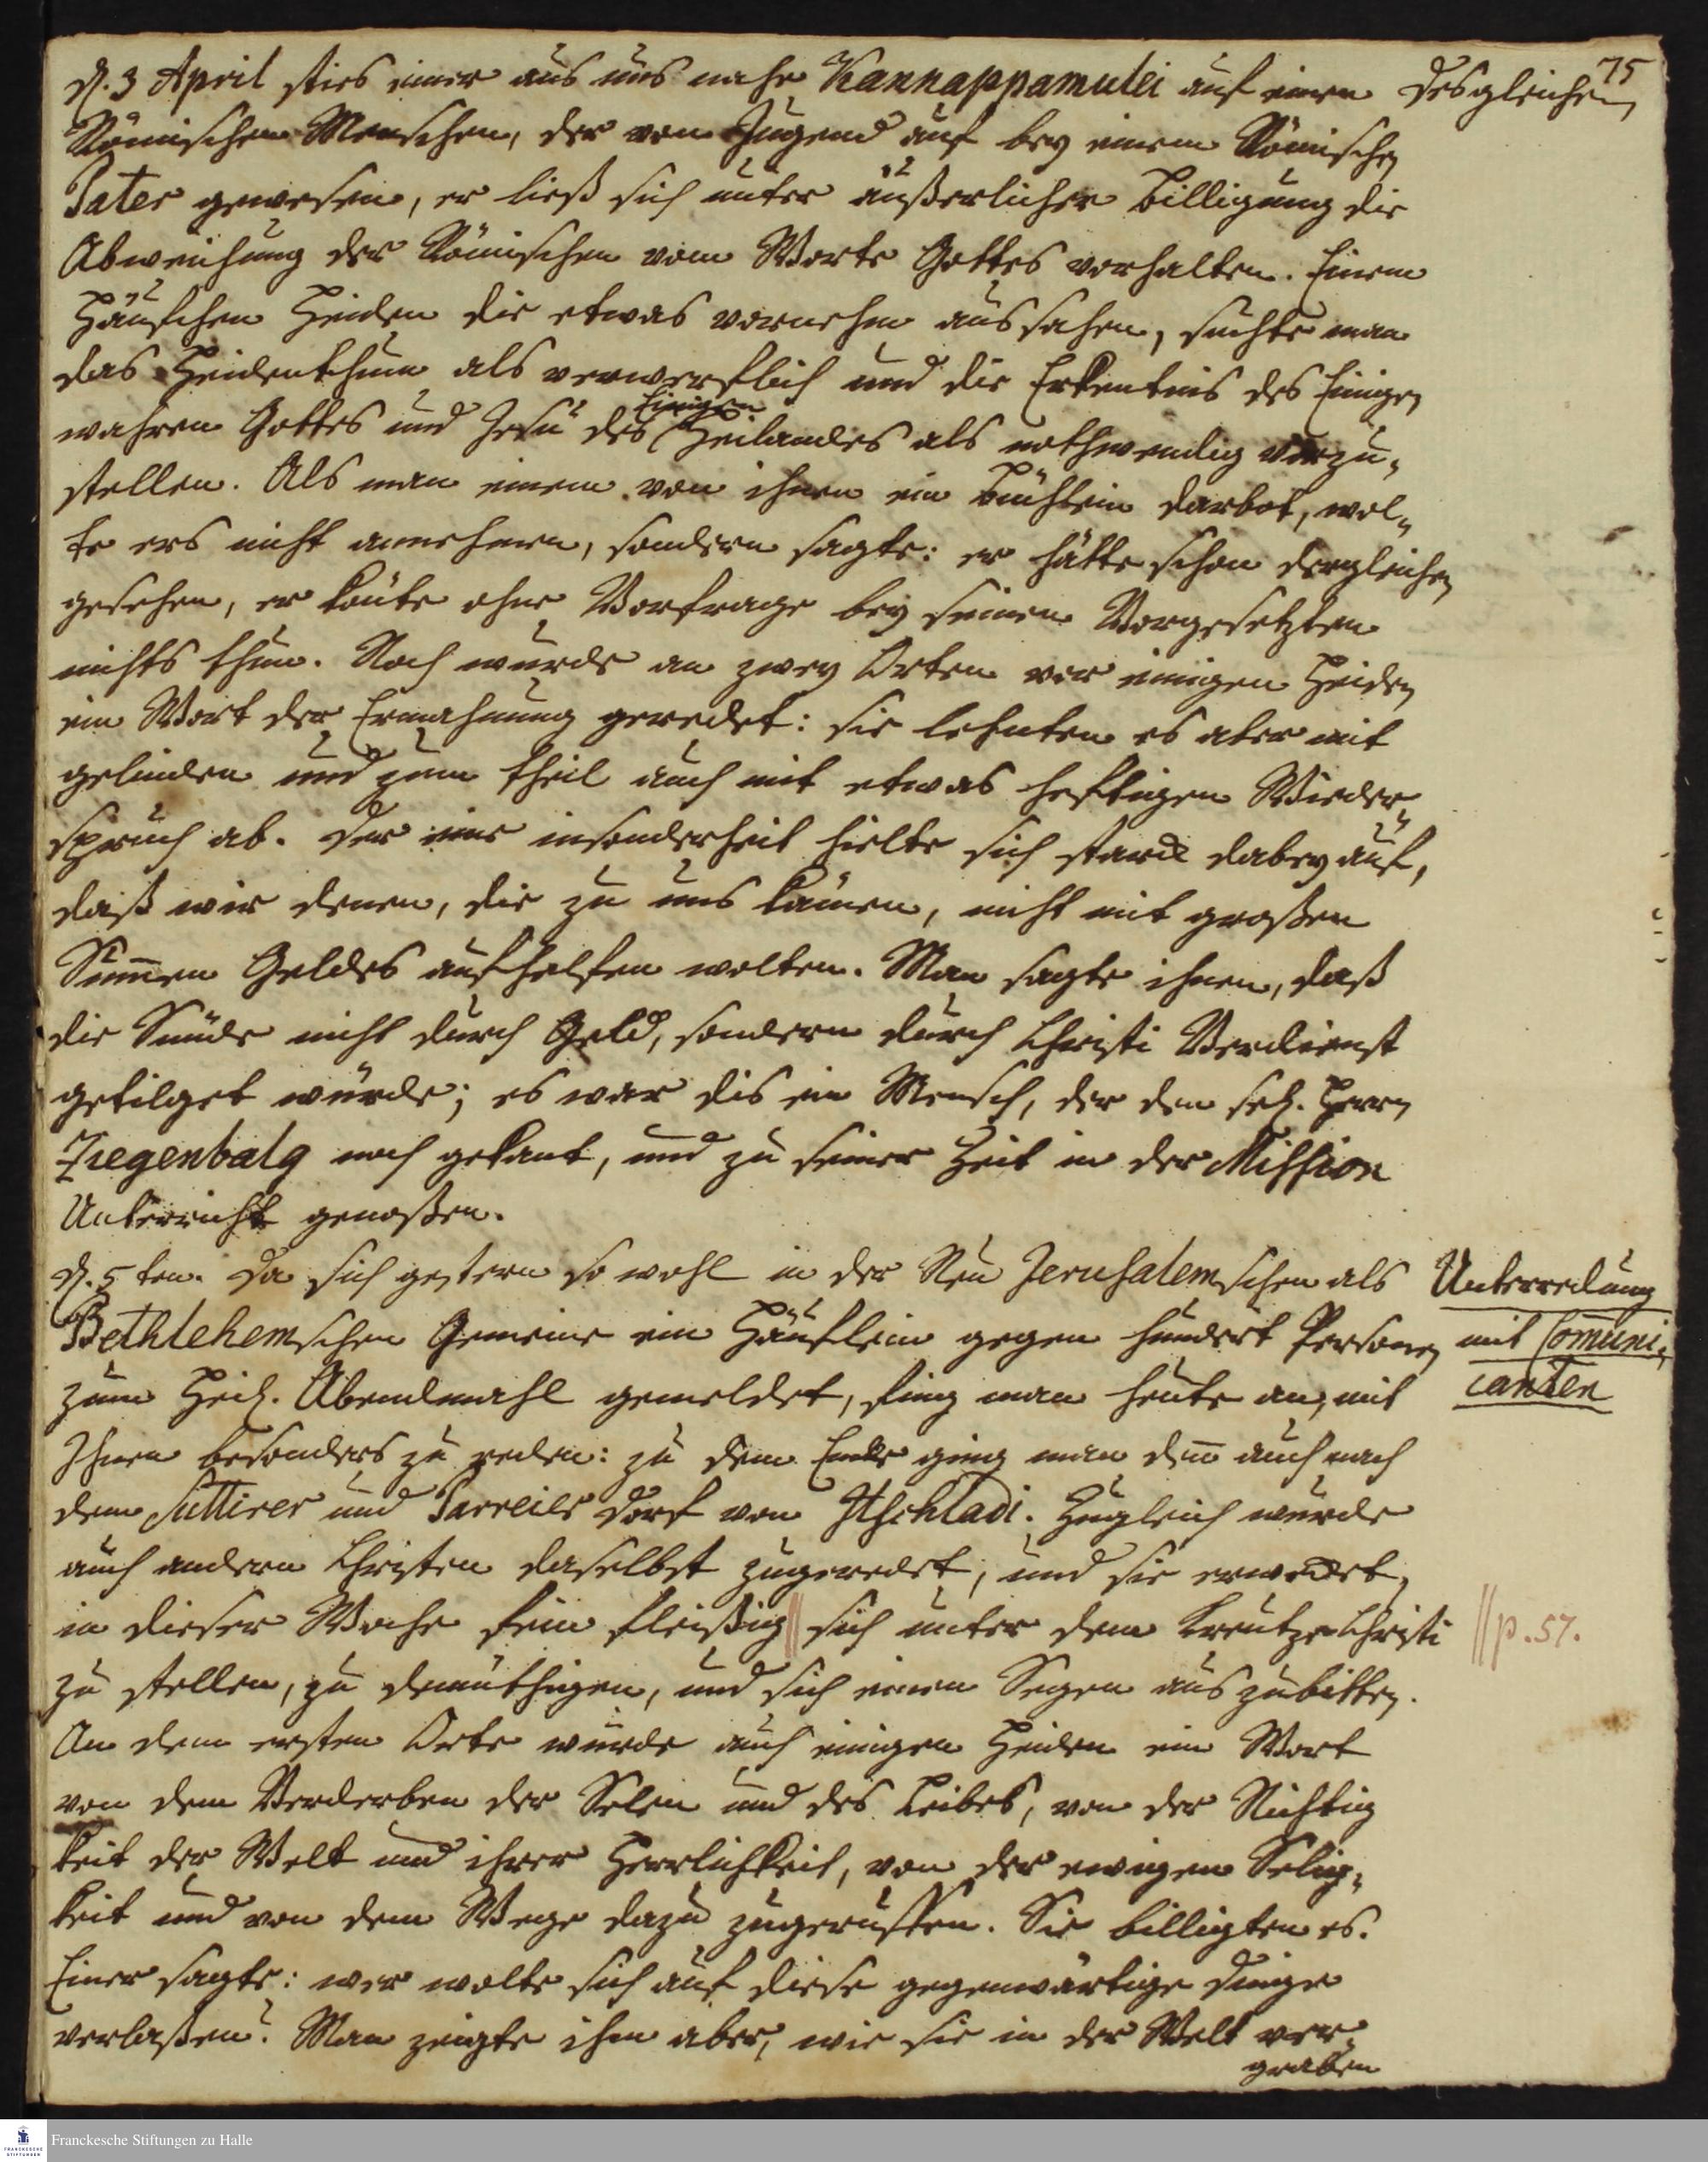 75
d. 3 April sties einer aus uns nahe Kannappamulei auf einen
desgleichen
Römischen Menschen, der von Jugend auf bey einem Römischen
Pater gewesen, er ließ sich unter äußerlicher Billigung die
Abweichung der Römischen vom Worte Gottes vorhalten. Einem
Häufchen Heiden die etwas vornehm aussahen, suchte man
das Heidenthum als verwerflich und die Erkentnis des Einigen
wahren Gottes und Jesu des Einigen Heilandes als nothwendig vorzu-
stellen. Als man einem von ihnen ein Büchlein darbot, wol-
te ers nicht annehmen, sondern sagte: er hätte schon dergleichen
gesehen, er könte ohne Vorfrage bey seinen Vorgesetzten
nichts thun. Noch wurde an zwey Orten vor einigen Heiden
ein Wort der Ermahnung geredet: sie lehnten es aber mit
gelinden und zum theil auch mit etwas heftigen Wieder-
spruch ab. Der eine insonderheit hielte sich starck dabey auf,
daß wir denen, die zu uns kämen, nicht mit großen
Sum̄en Geldes aufhelfen wolten. Man sagte ihnen, daß
die Sünde nicht durch Geld, sondern durch Christi Verdienst
getilget würde; es war dis ein Mensch, der den sel. Herrn
Ziegenbalg noch gekant, und zu seiner Zeit in der Mission
Unterricht genoßen.
d. 5 ten. Da sich gestern so wohl in der Neu Jerusalemschen als
Bethlehemschen Gemeine ein Häuflein gegen hundert Personen
zum Heil. Abendmahl gemeldet, fing man heute an, mit
Ihnen besonders zu reden: zu dem Ende ging man den̄ auch nach
dem Suttirer und Parreier Dorf von Itschladi. Zugleich wurde
auch andern Christen daselbst zugeredet, und sie erwecket,
in dieser Woche fein fleißig || sich unter dem Creutze Christi
zu stellen, zu demüthigen, und sich einen Segen auszubitten.
An dem ersten Orte wurde auch einigen Heiden ein Wort
von dem Verderben der Selen und des Leibes, von der Nichtig
keit der Welt und ihrer Herrlichkeit, von der ewigen Selig-
keit und von dem Wege dazu zugeruffen. Sie billigten es.
Einer sagte: wer wolte sich auf diese gegenwärtige Dinge
verlaßen? Man zeigte ihm aber, wie sie in der Welt ver-
graben
Unterredung
mit Com̄uni-
canten
|| p. 57.
Franckesche Stiftungen zu Halle